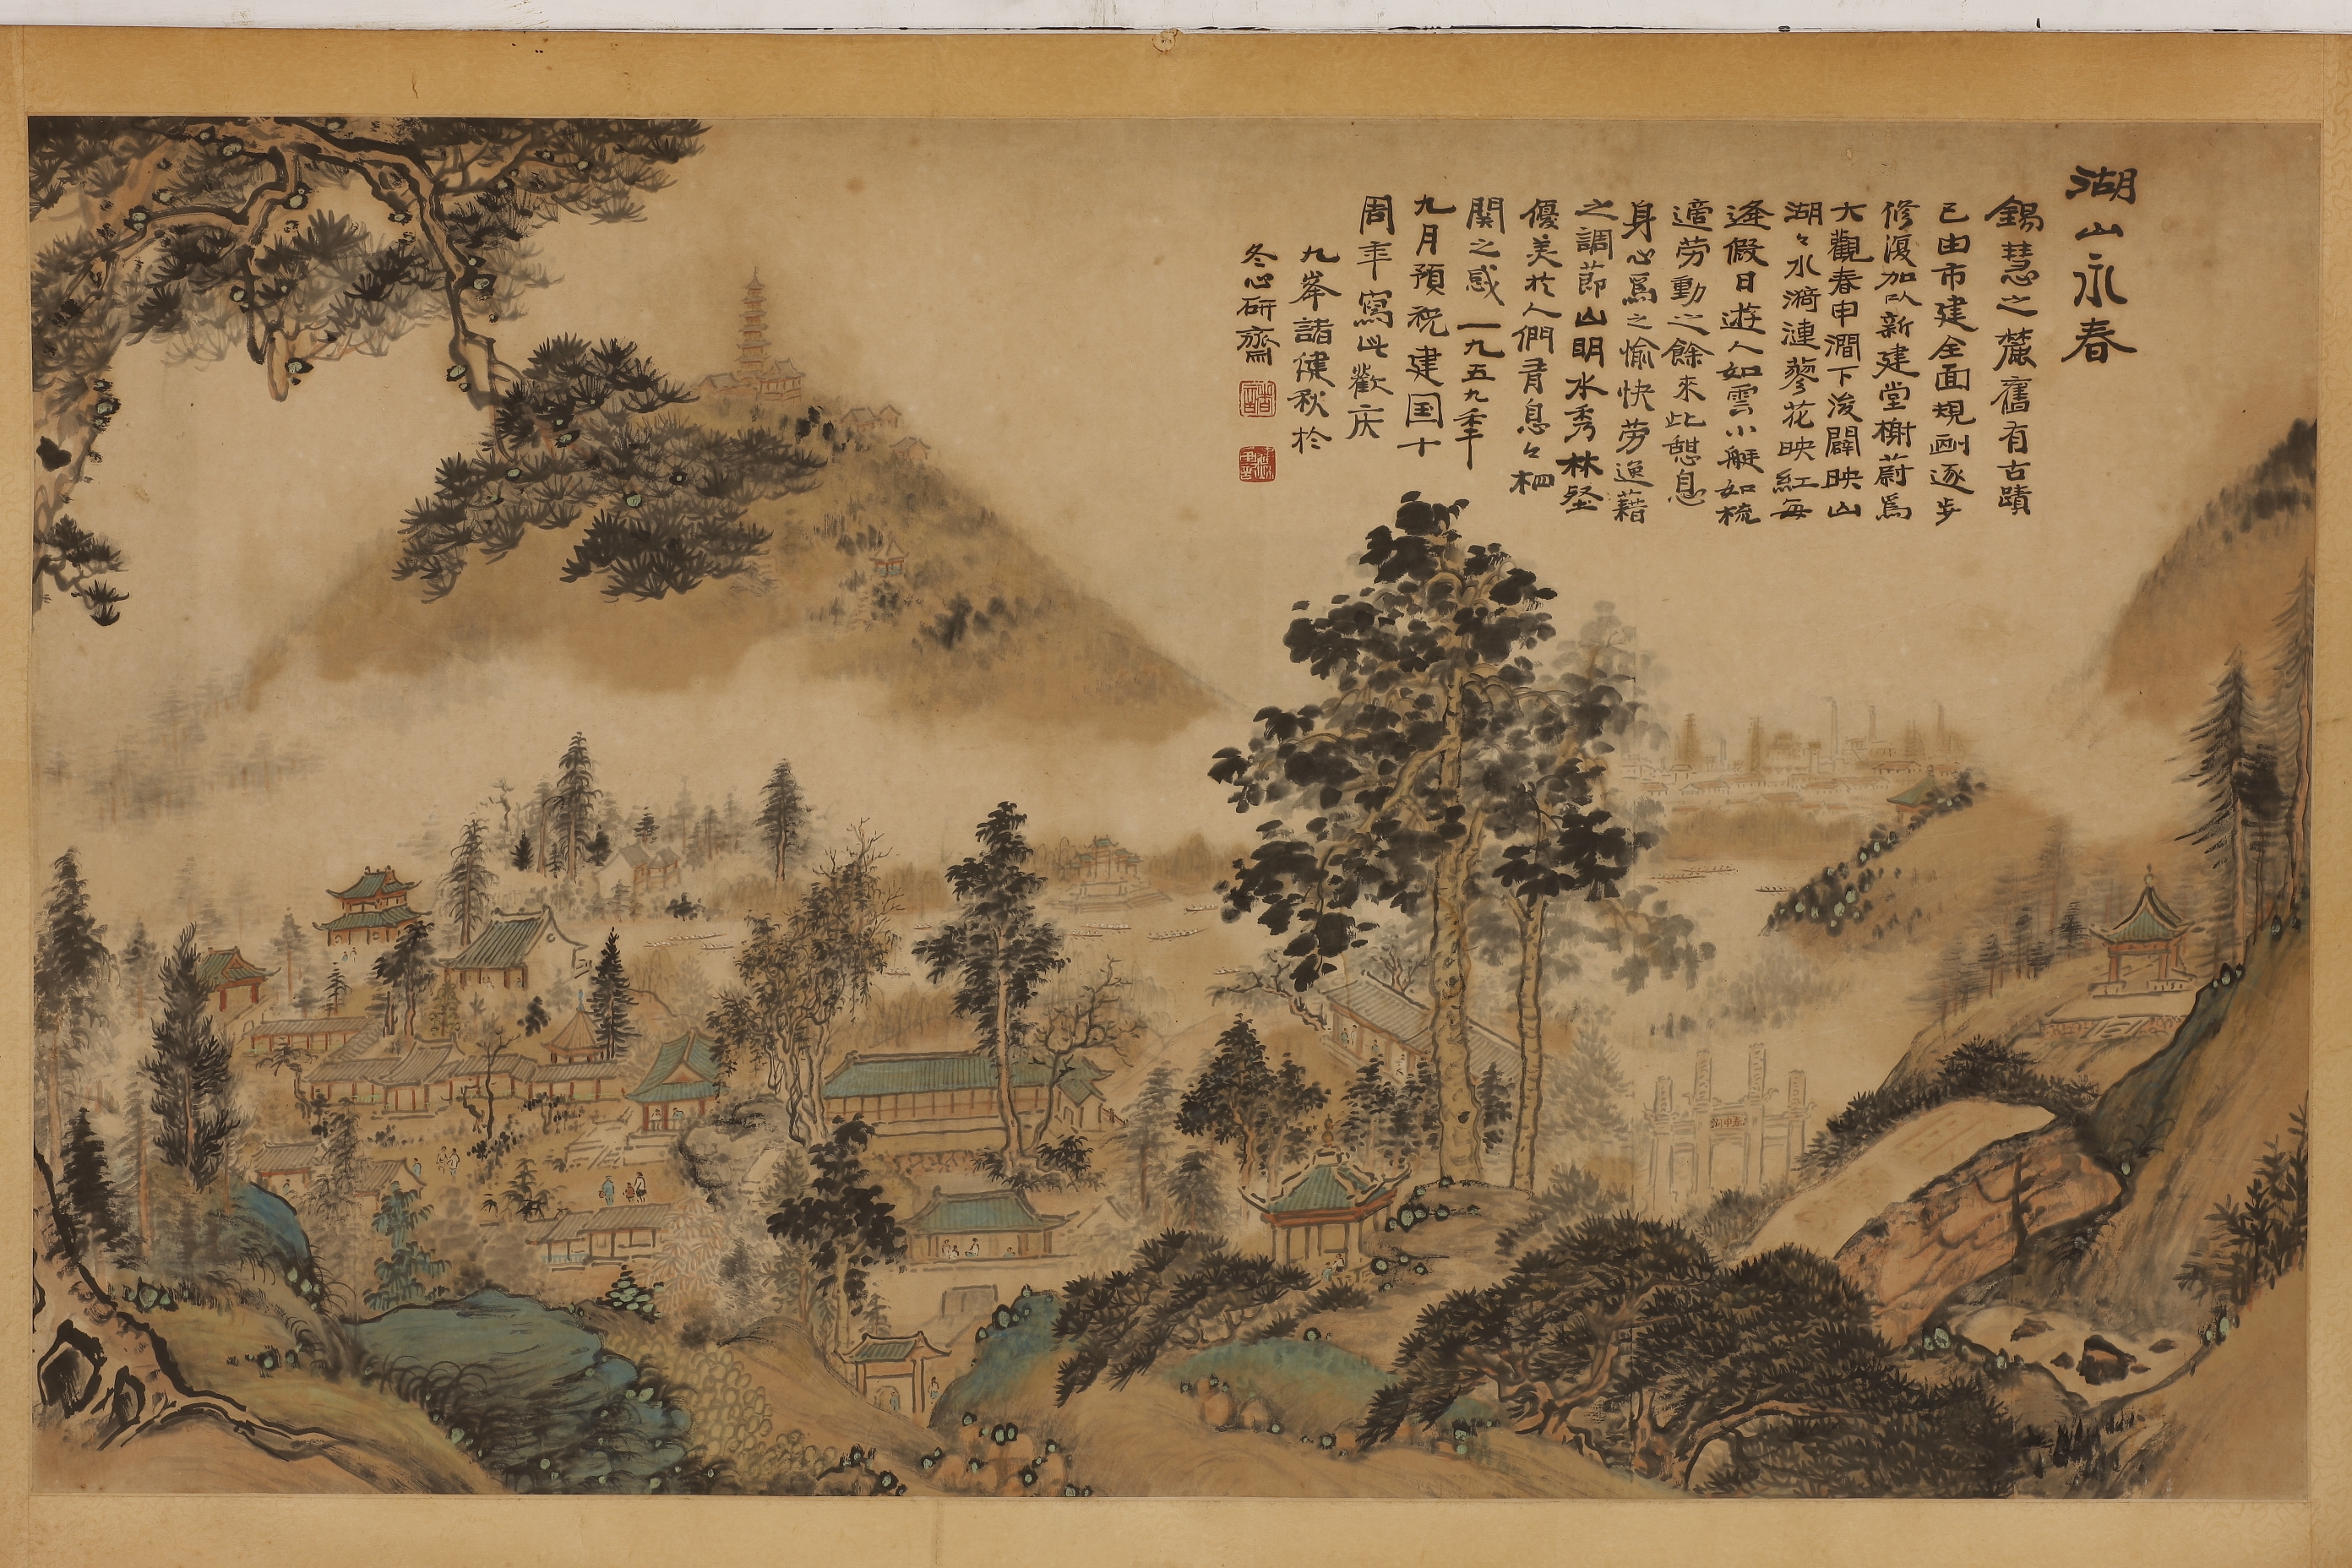 湖山永春
錫慧之麓舊有古蹟
已由市建全面規劃逐步
修復加以新建堂榭蔚爲
大觀春申澗下浚闢映山
湖々水漪漣蓼花映紅每
逢假日遊人如雲小艇如梳
適勞動之餘來此憩息
身心爲之愉快勞逸藉
之調節山明水秀林壑
優美於人們有息々相
関之感一九五九秊
九月預祝建国十
周年寫此歡庆
九峯諸健秋於
冬心研齋
春申澗